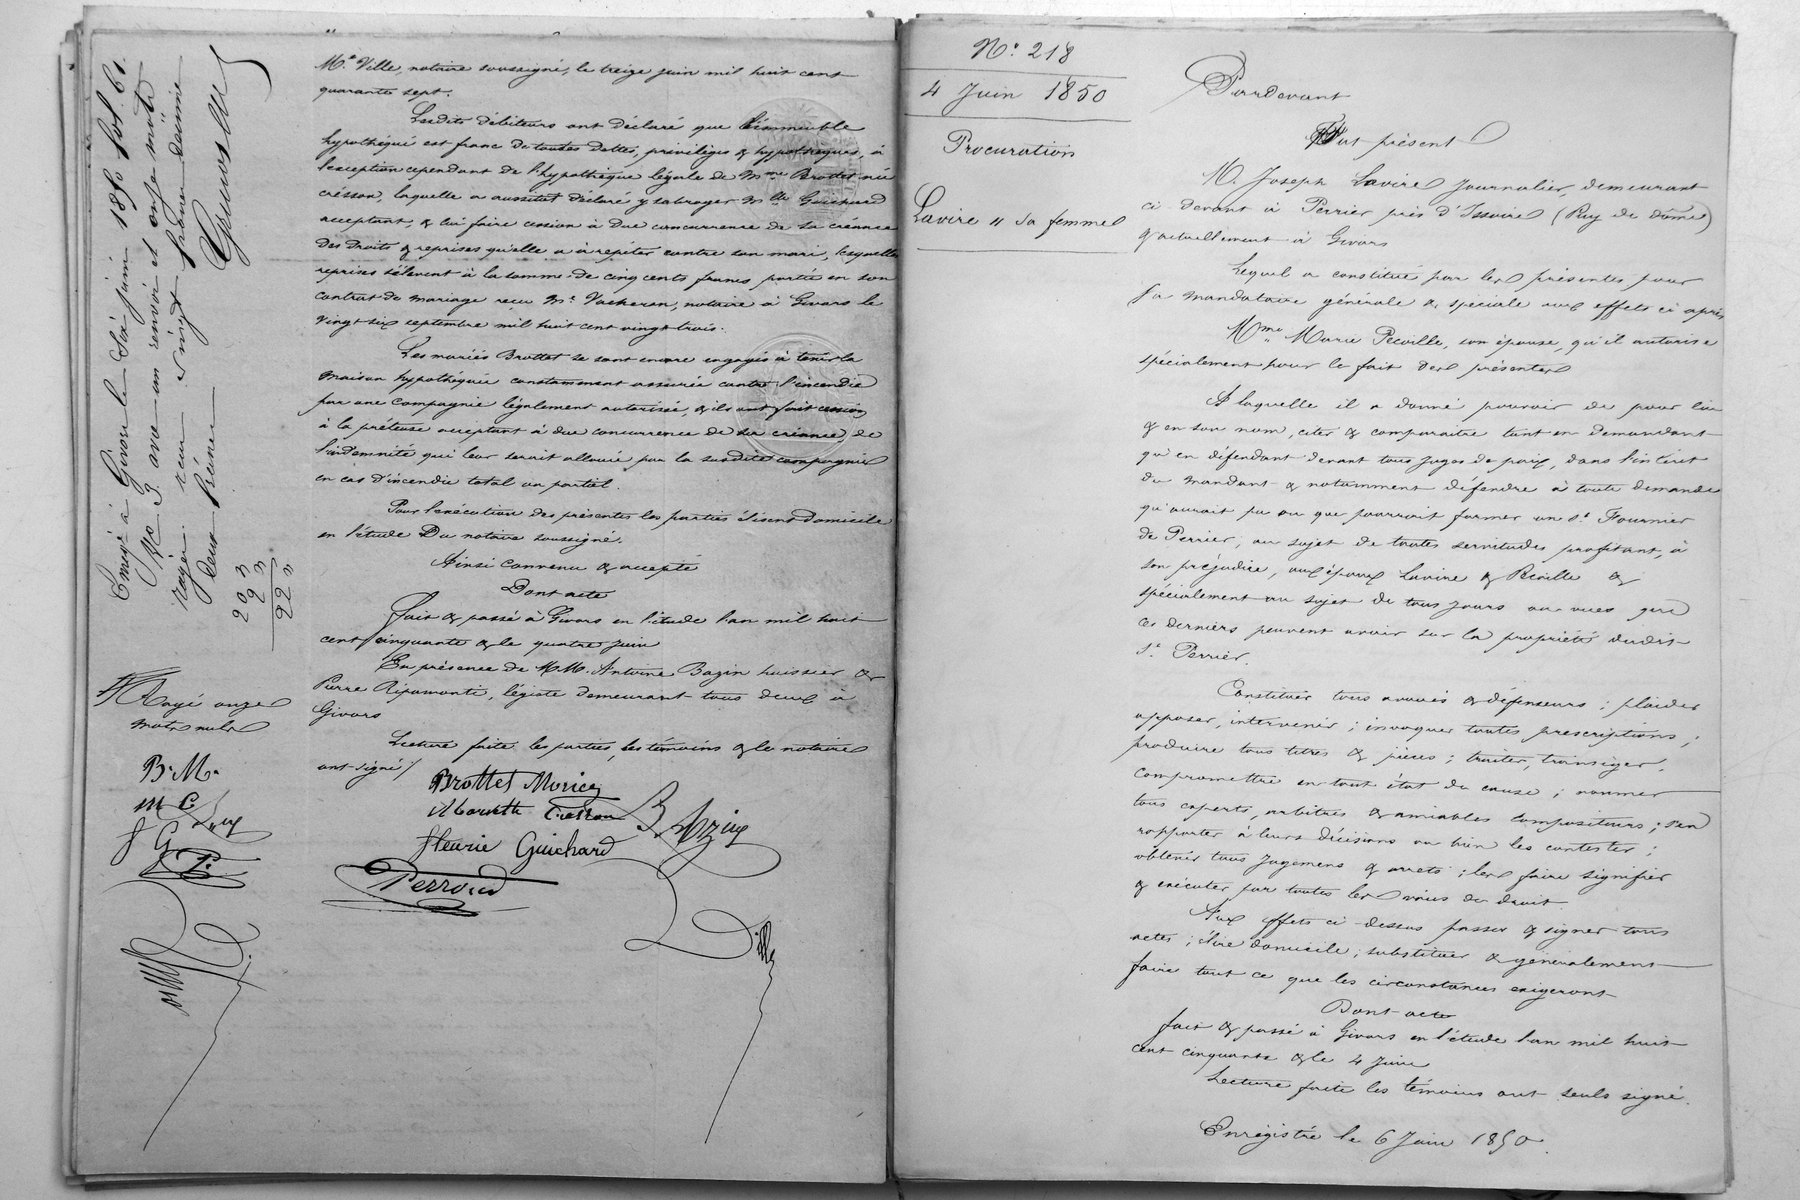 Me Ville, notaire soussigné, le treize juin mil huit cent
quarante sept.
Lesdits débiteurs ont déclaré que l'immeuble
hypothéqué est franc de toutes dettes, privilèges & hypothèques, à
l'exception cependant de l'hypothèque légale de Mme Brottet née
cresson, laquelle a aussitôt déclaré y subroger Mlle Guichard
acceptant, & lui faire cession à due concurrence de sa créance
des droits & reprises qu'elle a à répéter contre son mari, lesquelles
reprises s'élèvent à la somme de cinq cents francs portée en son
contrat de mariage reçu Me Vacheron, notaire à Givors le
vingt six septembre mil huit cent vingt trois.
Les mariés Brottet se sont encore engagés à tenir la
maison hypothéquée constamment assurée contre l'incendie
par une compagnie légalement autorisée, & ils ont fait cession
à la prêteuse acceptant à due concurrence de sa créance, de
l'indemnité qui leur serait allouée par la susdite compagnie
en cas d'incendie total ou partiel.
Pour l'exécution des présentes les parties élisent domicile
en l'étude Du notaire soussigné.
Ainsi convenu & accepté
Dont acte
fait & passé à Givors en l'étude l'an mil huit
cent cinquante & le quatre juin
En présence de MM. Antoine Bazin huissier &
Pierre Ripamonti, légiste demeurant tous deux à
Givors
Lecture faite les parties, les témoins & le notaire
ont signé /
Brottet Morice
Mariette Cresson
B. Azin
fleurie Guichard
Perroud
Ville
Enregé à Givors le Six juin 1850 fol. 61.
Vo C. 3. avec un renvoi et onze mots
rayés. reçu vingt francs décime
deux francs
203
23
223
Rayé onze
mots nuls
B. M.
m C
f G
P.
No 218
4 Juin 1850
Procuration
Lavire " sa femme
Pardevant
Fut présent
M. Joseph Lavire Journalier, demeurant
ci devant à Perrier près d'Issoire (Puy de dôme)
& actuellement à Givors
Lequel a constitué par les présentes pour
sa mandataire générale & spéciale aux effets ci après
Mme Marie Pécoille, son épouse, qu'il autorise
spécialement pour le fait des présentes
A laquelle il a donné pouvoir de pour lui
& en son nom, citer & comparaître tant en demandant
qu'en défendant devant tous juges de paix, dans l'intérêt
du mandant & notamment défendre à toute demande
qu'aurait pu ou que pourrait former un Sr Fournier
de Perrier, au sujet de toutes servitudes profitant, à
son préjudice, aux époux Lavire & Pécoille &
spécialement au sujet de tous jours ou vues que
ces derniers peuvent avoir sur la propriété dudit
Sr Perrier.
Constituer tous avoués & défenseurs ; plaider
opposer, intervenir ; invoquer toutes prescriptions ;
produire tous titres & pièces ; traiter, transiger,
compromettre en tout état de cause ; nommer
tous experts, arbitres & amiables compositeurs ; s'en
rapporter à leurs décisions ou bien les contester ;
obtenir tous jugemens & arrêts ; les faire signifier
& exécuter par toutes les voies de droit.
Aux effets ci-dessus passer & signer tous
actes ; élire domicile ; substituer & généralement
faire tout ce que les circonstances exigeront
Dont acte
fait & passé à Givors en l'étude l'an mil huit
cent cinquante & le 4 Juin
Lecture faite les témoins ont seuls signé.
Enregistré le 6 Juin 1850.